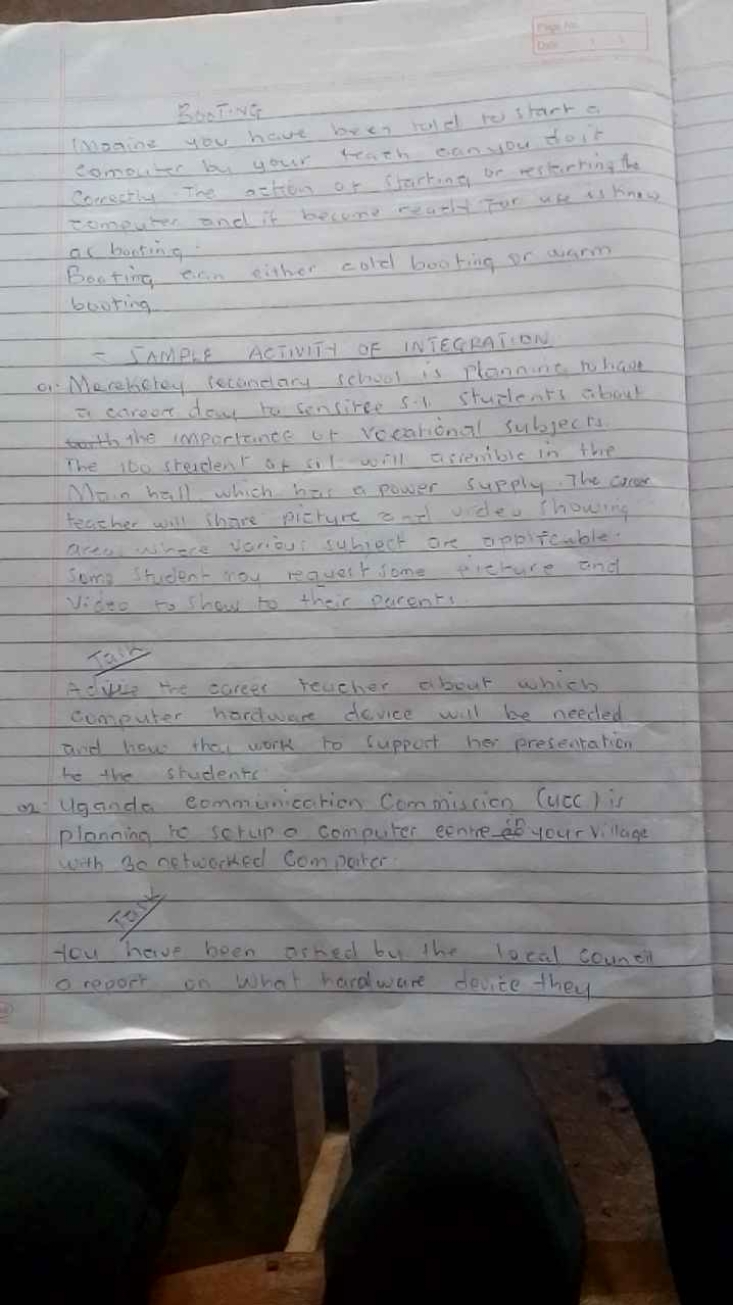 Page No.
Date
BOOTING
Imagine you have been told to start a
computer by your teach can you do it
correctly. The action of starting or restarting the
computer and it become ready for use is know
as booting.
Booting can either cold booting or warm
booting
- SAMPLE ACTIVITY OF INTEGRATION
01. secondary school is planning to have
a career day to sensitee s.1. students about
the importance of vocational subjects.
The 100 student of s.1. will assemble in the
Main hall which has a power supply. The career
teacher will share picture and video showing
area where various subject are applicable.
Some student may request some picture and
Video to show to their parents.
Task
Advise the career teacher about which
computer hardware device will be needed
and how they work to support her presentation
to the students.
02. Uganda Communication Commission (UCC) is
planning to setup a computer centre in your village
with 30 networked Computer.
Task
You have been asked by the local council
a report on what hardware device they